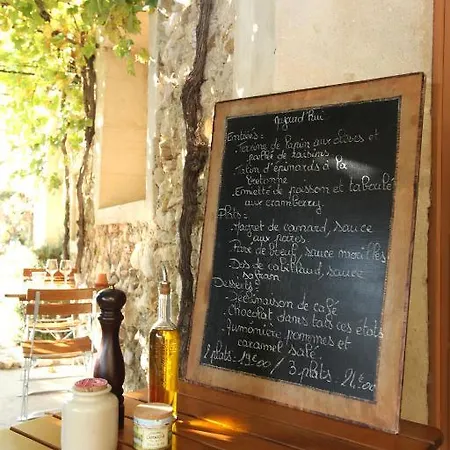 Aujourd'hui
Entrées :
. Terrine de lapin aux olives et
poêlée de raisins
d'épinards à la
Bretonne
. Emietté de poisson et taboulé
aux cramberry.
Plats :
. Magret de canard, sauce
aux poires
. Pavé de Boeuf, sauce morilles
. Dos de cabillaud, sauce
safran
Desserts :
. Déclinaison de café
. Chocolat dans tous ces états
. Aumônière pommes et
caramel salé.
2 plats : 19€00 / 3 plats : 21,00